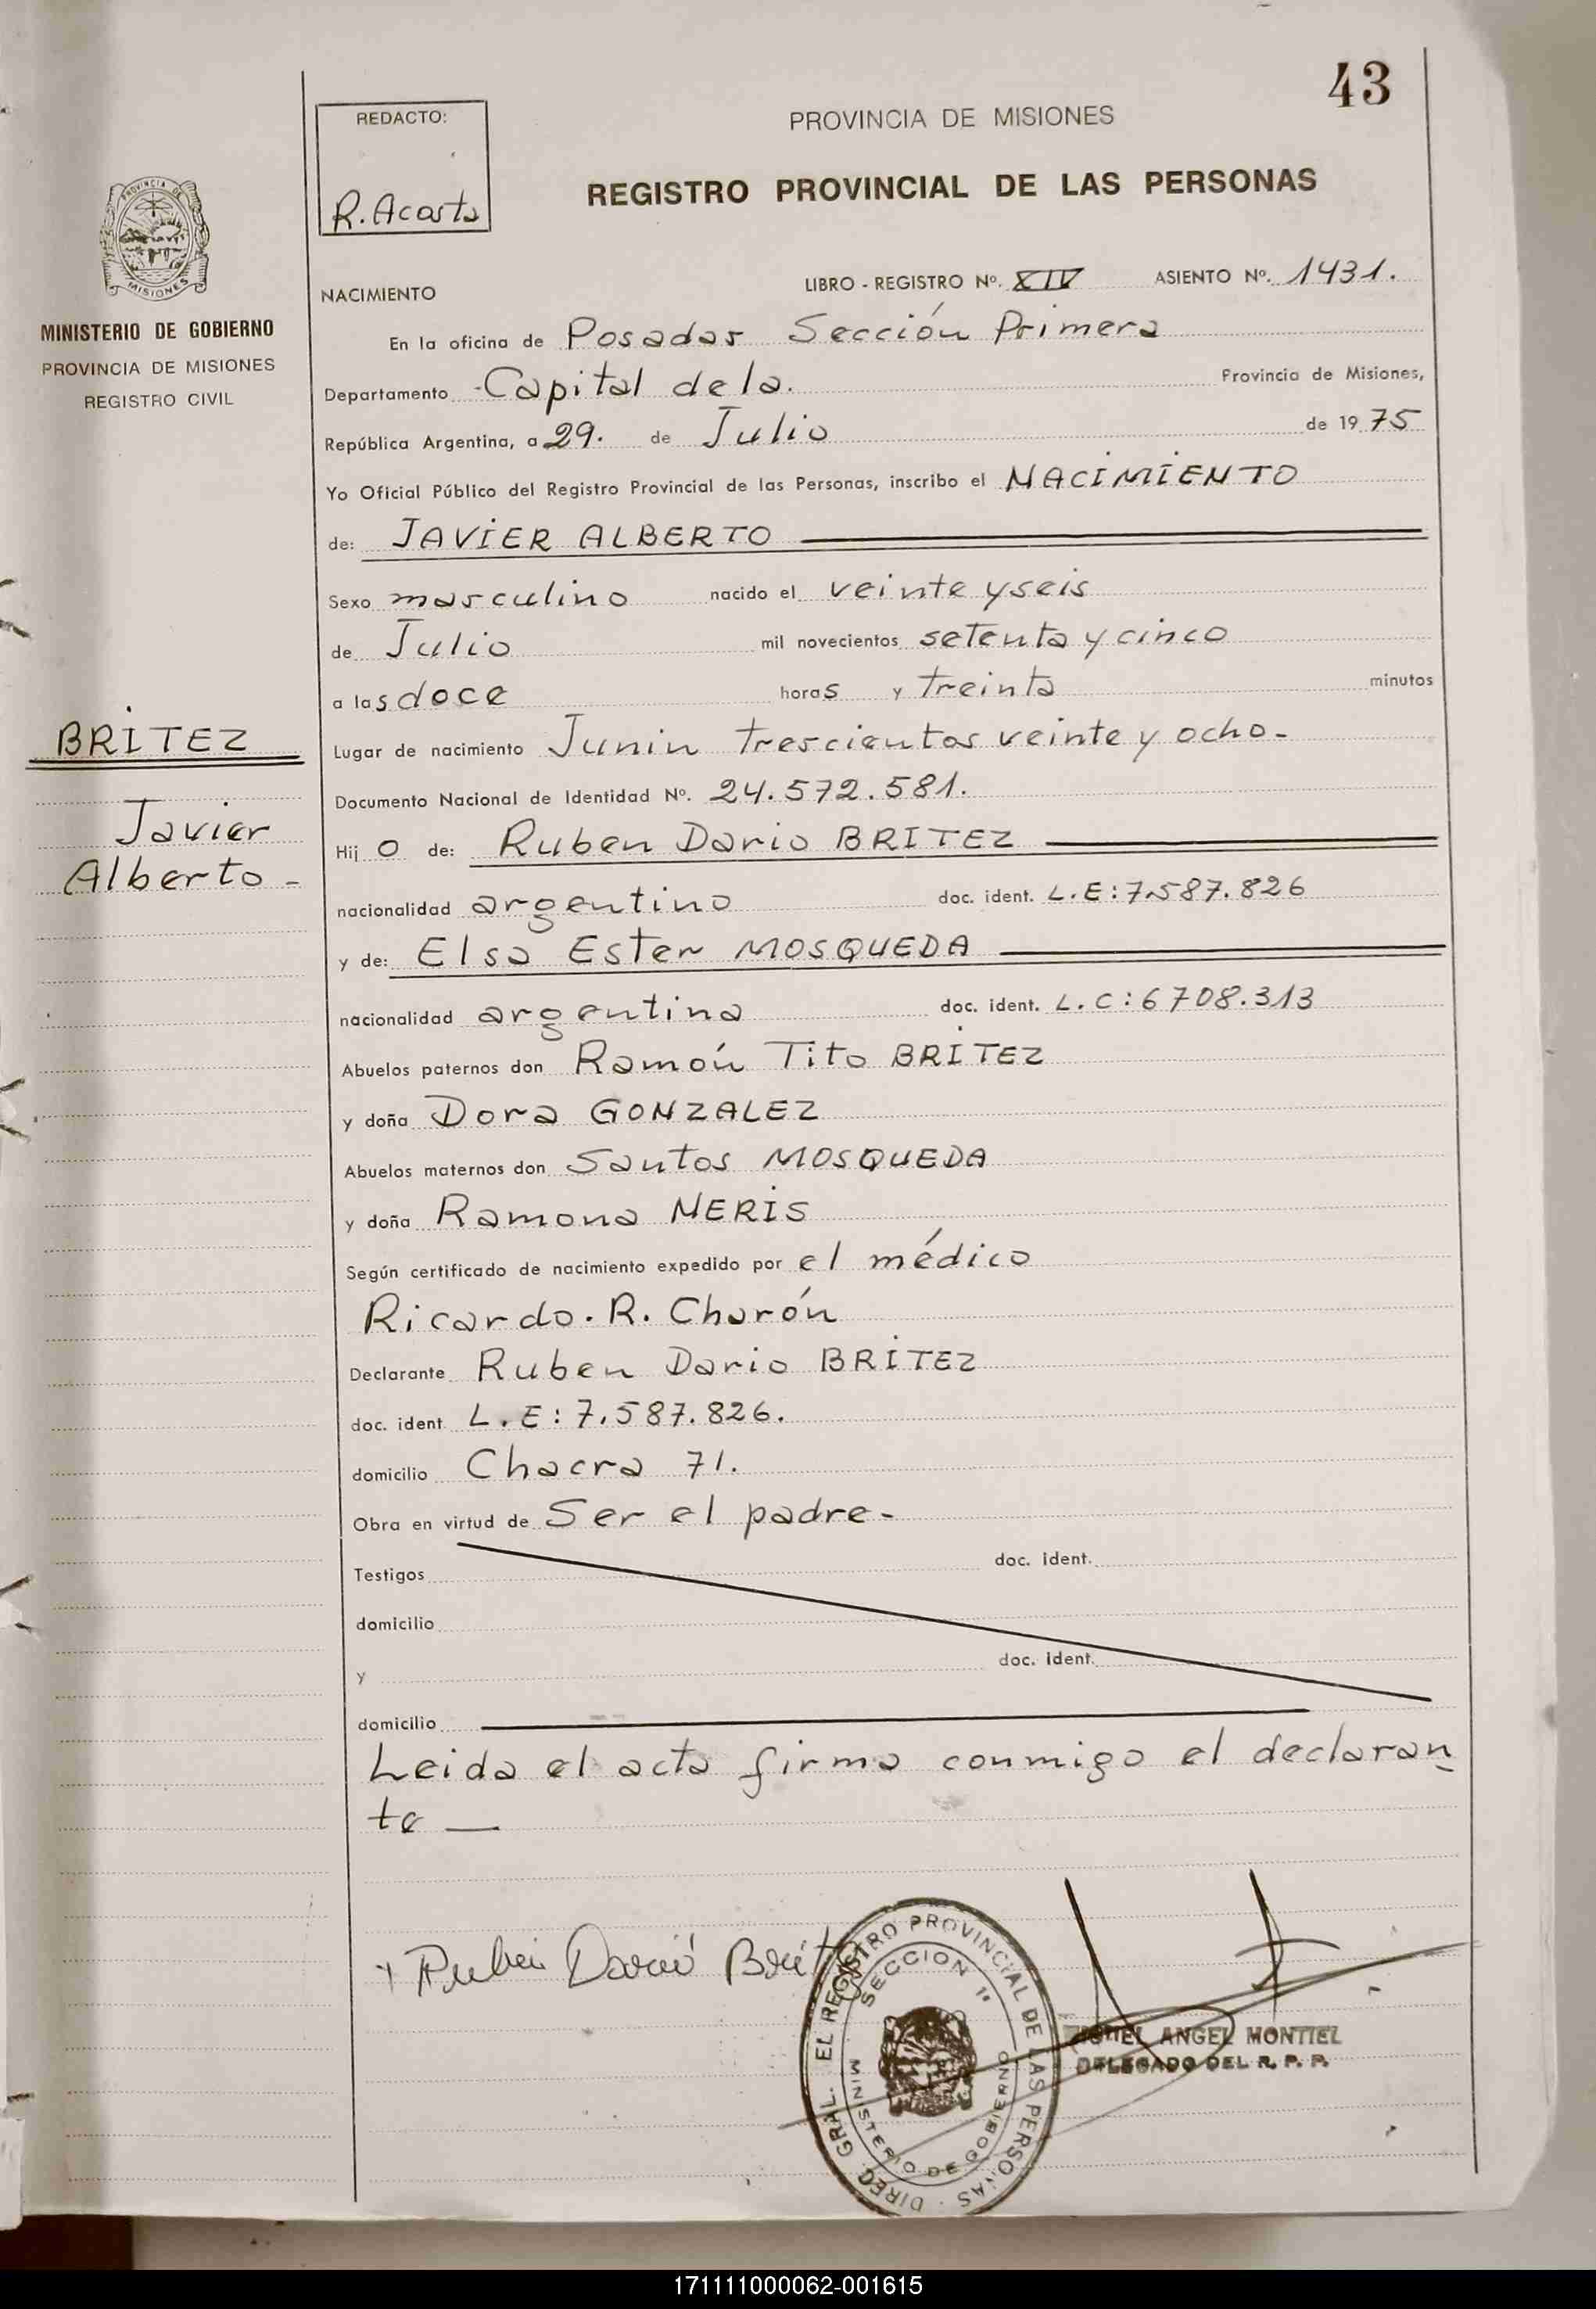 43
REDACTO:
R. Acosta
PROVINCIA DE MISIONES
REGISTRO PROVINCIAL DE LAS PERSONAS
PROVINCIA DE
MISIONES
MINISTERIO DE GOBIERNO
PROVINCIA DE MISIONES
REGISTRO CIVIL
NACIMIENTO
LIBRO - REGISTRO Nº. XIV ASIENTO Nº. 1431.
En la oficina de Posadas Sección Primera
Departamento Capital de la. Provincia de Misiones,
República Argentina, a 29. de Julio de 1975
Yo Oficial Público del Registro Provincial de las Personas, inscribo el NACIMIENTO
de: JAVIER ALBERTO
Sexo masculino nacido el veinte y seis
de Julio mil novecientos setenta y cinco
a las doce horas y treinta minutos
BRITEZ
Javier
Alberto -
Lugar de nacimiento Junin trescientos veinte y ocho-
Documento Nacional de Identidad Nº. 24.572.581.
Hijo de: Ruben Dario BRITEZ
nacionalidad argentino doc. ident. L.E: 7.587.826
y de: Elsa Ester MOSQUEDA
nacionalidad argentina doc. ident. L.C: 6708.313
Abuelos paternos don Ramón Tito BRITEZ
y doña Dora GONZALEZ
Abuelos maternos don Santos MOSQUEDA
y doña Ramona NERIS
Según certificado de nacimiento expedido por el médico
Ricardo. R. Charón
Declarante Ruben Dario BRITEZ
doc. ident. L.E: 7.587.826.
domicilio Chacra 71.
Obra en virtud de Ser el padre-
Testigos doc. ident.
domicilio
y doc. ident.
domicilio
Leida el acta firma conmigo el declaran
te —
Ruben Darió Britez
DIREC. GRAL. EL REGISTRO PROVINCIAL DE LAS PERSONAS
SECCION 1ª
MINISTERIO DE GOBIERNO
ANGEL MONTIEL
DELEGADO DEL R. P. P.
171111000062-001615